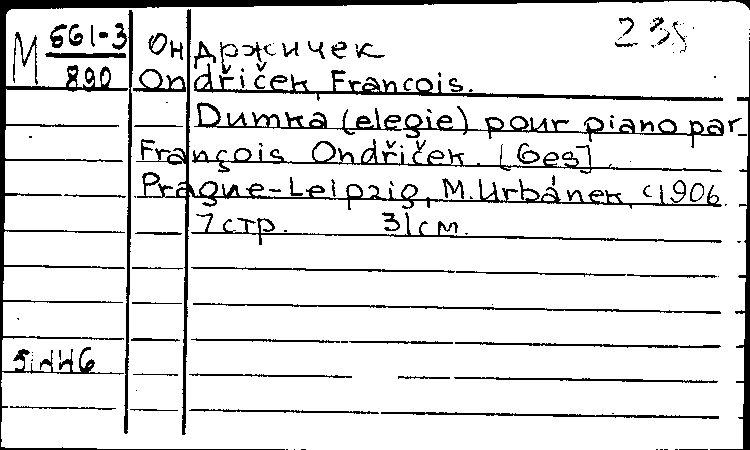 238
М 661-3 Он држичек
890 Ondřiček, Francois.
Dumka (elegie) pour piano par
François Ondřiček. [Ges]
Prague-Leipzig, M. Urbánek, c1906
7 стр. 31 см.